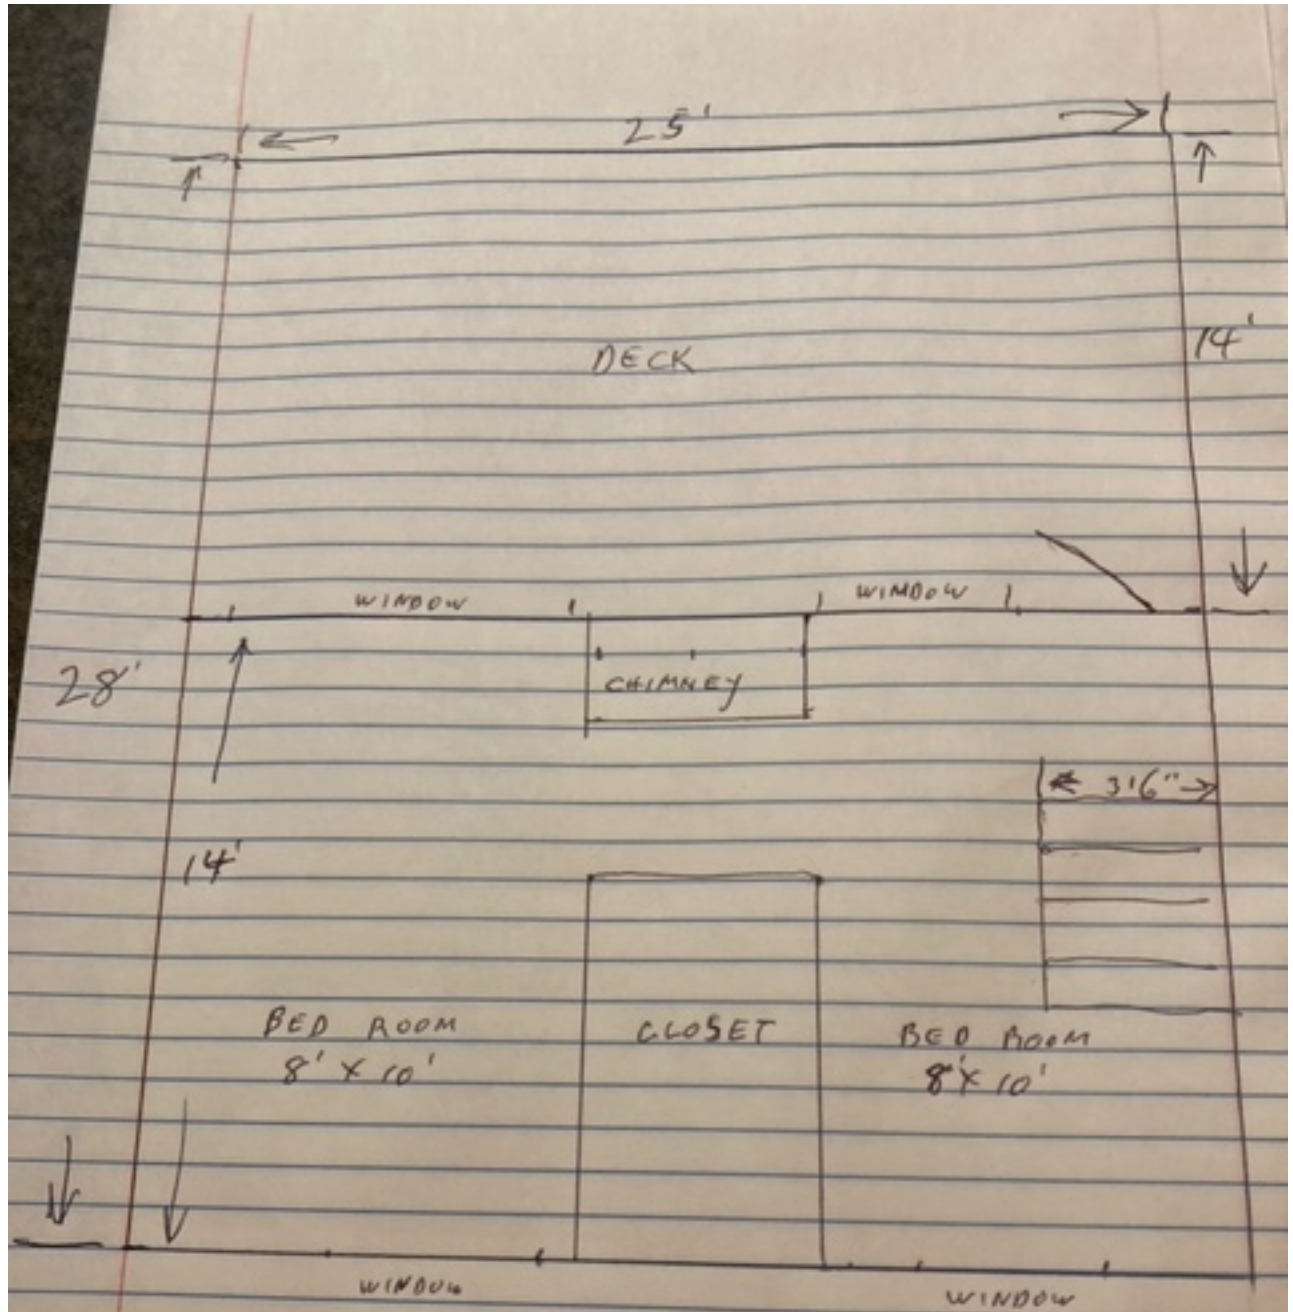 25'
DECK
14'
WINDOW
WINDOW
28'
CHIMNEY
3'6"
14'
BED ROOM
8' X 10'
CLOSET
BED ROOM
8' X 10'
WINDOW
WINDOW